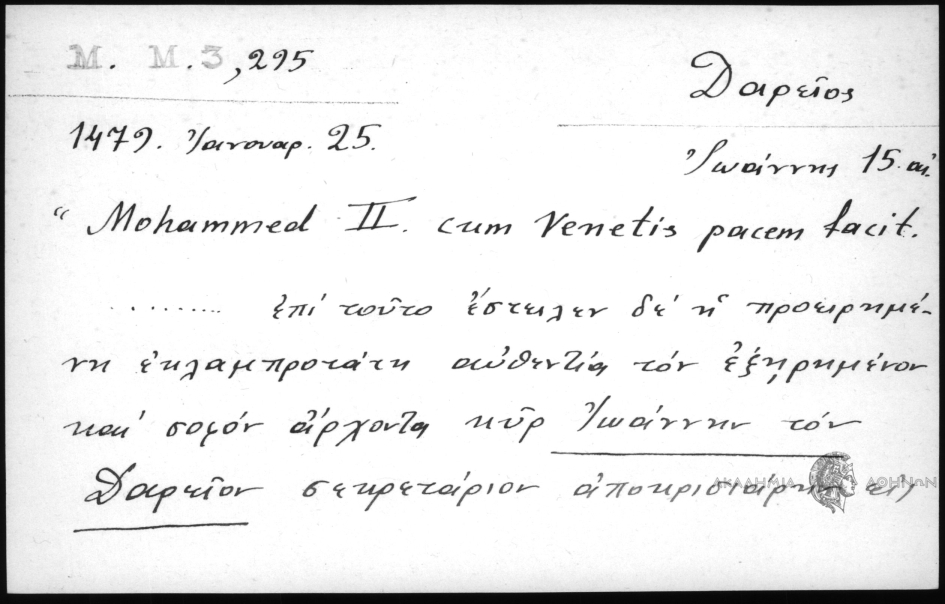 M. M. 3, 295
Δαρεῖος
1479. Ἰανουαρ. 25.
Ἰωάννης 15. αἰ.
“ Mohammed II. cum Venetis pacem facit.
......... ἐπί τοῦτο ἔστειλεν δέ ἡ προειρημέ-
νη ἐκλαμπροτάτη αὐθεντία τόν ἐξῃρημένον
καί σοφόν ἄρχοντα κῦρ Ἰωάννην τόν
Δαρεῖον σεκρετάριον ἀποκρισιάρην εἰς
ΑΚΑΔΗΜΙΑ ΑΘΗΝΩΝ